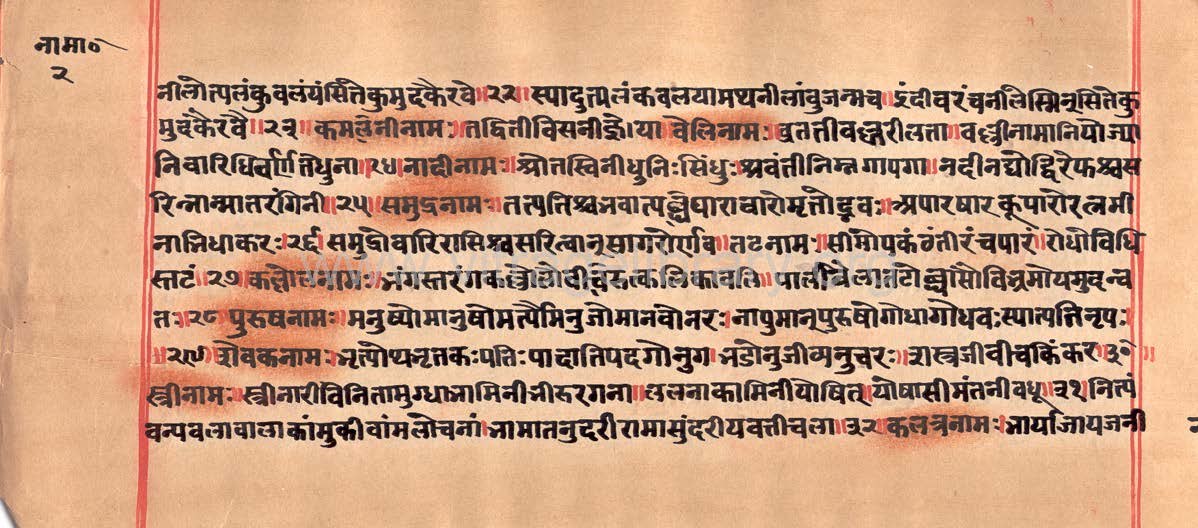 नामा०
२
नीलोत्पलं कुवलयं सिते कुमुदकैरवे ॥२२॥ स्यादुत्पलं कवलयामथनीलांवुजन्मच ॥ इंदीवरंचनीलेस्मिन्सितेकु
मुदकैरवै ॥२३॥ कमलैनीनामः ॥ तद्वितीविसनी ज्ञेया वेलिनामः ॥ व्रततीवल्लरीलता ॥ वल्लीनामानियोज्या
निवारिधि तेधुना ॥२४॥ नादीनामः ॥ श्रोतस्विनीधुनिःसिंधुः श्रवंतीनिम्नगापगा ॥ नदीनद्योद्विरेफश्चस
रिन्नाम्नातरंगिनी ॥२५॥ समुद्रनामः तत्पतिश्च त्पारावारोमृतोद्भवः ॥ अपारपारकूपारोरत्नमी
नाभिधाकरः ॥२६॥ समुद्रोवारिरासिश्चसरित्वान्सागरोर्णव ॥ तटनामः ॥ तीरंचपारं ॥ रोधोविधि
स्तटं ॥२७॥ कलोलनामः भंगस्तरंगकल्लोलो ॥ पाली
तः ॥२८ पुरुषनामः ॥ मनुष्योमानुषोमर्त्यौमनुजोमानवोनरः ॥ नापुमान्पुरुषोगोधागोधवःस्यात्पतिनृपः
॥२९॥ शेवकनामः भृत्योथभृतकःपतिः पादातिपदगोनुग भडोनुजीव्यनुचरः ॥ शस्त्रजीवीचकिंकर ॥३०॥
स्त्रीनामः ॥ स्त्रीनारीवनितामुग्धाभामिनीभीरुरगना ॥ ललनाकामिनीयोषित् ॥ योषासीमंतनीवधू ॥३१ नितं
वन्यवलावालाकांमुकीवांमलोचनां ॥ भामातनुदरीरामासुंदरीयवतीचला ॥३२ कलत्रनामः ॥ भार्याजायजनी